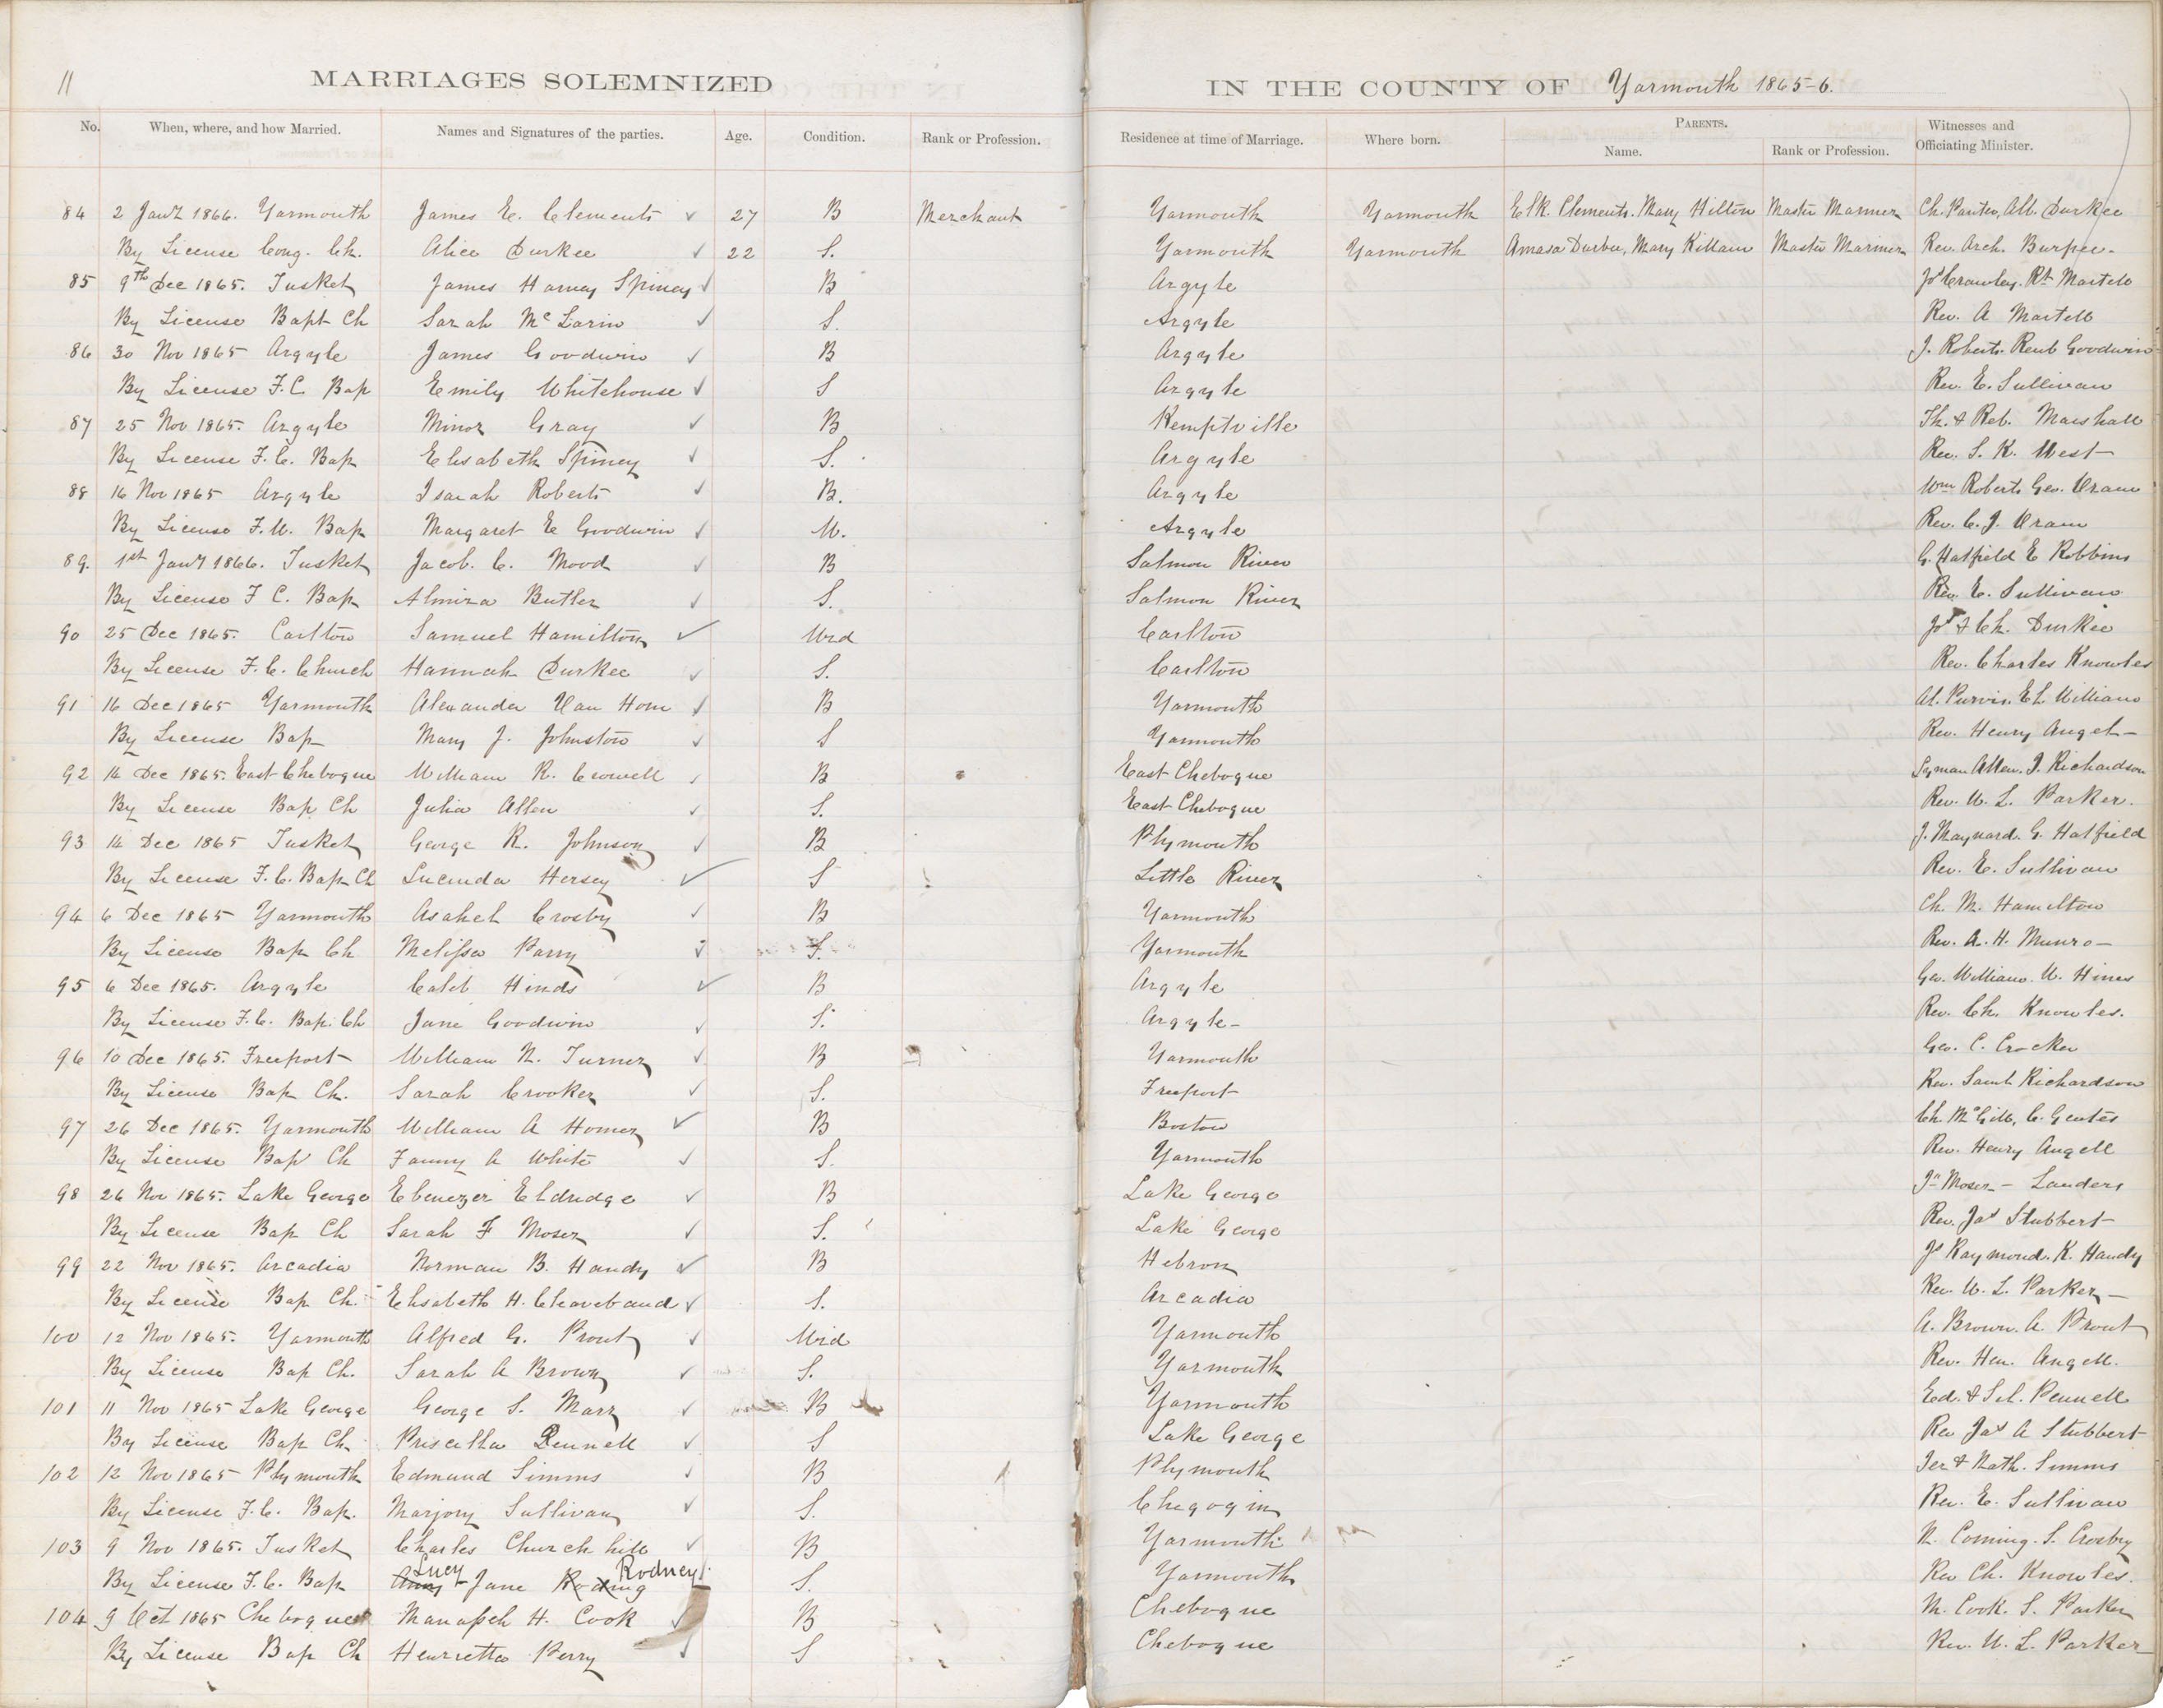 11 MARRIAGES SOLEMNIZED IN THE COUNTY OF Yarmouth 1865-6.
No. When, where, and how Married. Names and Signatures of the parties. Age. Condition. Rank or Profession. Residence at time of Marriage. Where born. PARENTS. Name. Rank or Profession. Witnesses and Officiating Minister.
84 2 Jany 1866. Yarmouth James E. Clements 27 B Merchant Yarmouth Yarmouth Elk. Clements. Mary Hilton Master Mariner Ch. Alb. Durkee
By License Cong. Ch. Alice Durkee 22 S. Yarmouth Yarmouth Amasa Durkee, Mary Killam Master Mariner Rev. Arch. Burpee.
85 9th Dec 1865. Tusket James Harvey Spiney B Argyle Jos Crawley. Rt Martell
By License Bapt Ch Sarah Mc Larin S. Argyle Rev. A Martell
86 30 Nov 1865 Argyle James Goodwin B Argyle J. Roberts. Reub Goodwin
By License F.C. Bap Emily Whitehouse S Argyle Rev. E. Sullivan
87 25 Nov 1865. Argyle Minor Gray B Kemptville Th. & Reb. Marshall
By License F.C. Bap Elisabeth Spiney S. Argyle Rev. S. K. West
88 16 Nov 1865 Argyle Isaiah Roberts B. Argyle Wm Roberts Geo. Oram
By License F.W. Bap Margaret E Goodwin W. Argyle Rev. C. J. Oram
89. 1st Jany 1866. Tusket Jacob. C. Mood B Salmon River G. Hatfield E Robbins
By License F C. Bap Almira Butler S. Salmon River Rev. E. Sullivan
90 25 Dec 1865. Carlton Samuel Hamilton Wid Carlton Jos & Ch. Durkee
By License F.C. Church Hannah Durkee S. Carlton Rev. Charles Knowles
91 16 Dec 1865 Yarmouth Alexander Van Horn B Yarmouth Al. Purvis. E L Williams
By License Bap Mary J. Johnston S Yarmouth Rev. Henry Angel
92 14 Dec 1865. East Chebogue William R. Crowell B East Chebogue Lyman Allen. J. Richardson
By License Bap Ch Julia Allen S. East Chebogue Rev. W. L. Parker.
93 14 Dec 1865 Tusket George R. Johnson B Plymouth J. Maynard. G. Hatfield
By License F.C. Bap Ch Lucinda Hersey S Little River Rev. E. Sullivan
94 6 Dec 1865 Yarmouth Asahel Crosby B Yarmouth Ch. M. Hamilton
By License Bap Ch Melissa Parry S. Yarmouth Rev. A. H. Munro
95 6 Dec 1865. Argyle Caleb Hinds B Argyle Geo. Williams. W. Hines
By License F.C. Bap. Ch Jane Goodwin S. Argyle Rev. Ch. Knowles.
96 10 Dec 1865. Freeport William N. Turner B Yarmouth Geo. C. Crocker
By License Bap Ch. Sarah Crooker S. Freeport Rev. Saml Richardson
97 26 Dec 1865. Yarmouth William A Homer B Boston Ch. McGill, C. Geates
By License Bap Ch Fanny A White S. Yarmouth Rev. Henry Angell
98 26 Nov 1865. Lake George Ebenezer Eldridge B Lake George Jn Moser - Landers
By License Bap Ch Sarah F Moser S. Lake George Rev. Jas Stubbert
99 22 Nov 1865. Arcadia Norman B. Handy B Hebron Js Raymond. K. Handy
By License Bap Ch. Elisabeth H. Cleaveland S. Arcadia Rev. W. L. Parker
100 12 Nov 1865. Yarmouth Alfred G. Prout Wid Yarmouth A. Brown. A. Prout
By License Bap Ch. Sarah A Brown S. Yarmouth Rev. Hen. Angell.
101 11 Nov 1865 Lake George George S. Marr B Yarmouth Ed. & Sel. Pennell
By License Bap Ch. Priscilla Pennell S Lake George Rev Jas A Stubbert
102 12 Nov 1865 Plymouth Edmund Simms B Plymouth Jer & Nath. Simms
By License F.C. Bap. Marjory Sullivan S. Chegogin Rev. E. Sullivan
103 9 Nov 1865. Tusket Charles Churchill B Yarmouth N. Coming. S. Crosby
By License F.C. Bap Amy Lucy Jane Roding Rodney S. Yarmouth Rev Ch. Knowles.
104 9 Oct 1865 Chebogue Manasseh H. Cook B Chebogue M. Cook. S. Parker
By License Bap Ch Henrietta Perry S Chebogue Rev. W. L. Parker